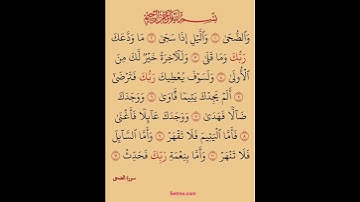 بِسْمِ ٱللَّهِ ٱلرَّحْمَٰنِ ٱلرَّحِيمِ
وَٱلضُّحَىٰ ١ وَٱلَّيْلِ إِذَا سَجَىٰ ٢ مَا وَدَّعَكَ
رَبُّكَ وَمَا قَلَىٰ ٣ وَلَلْءَاخِرَةُ خَيْرٌ لَّكَ مِنَ
ٱلْأُولَىٰ ٤ وَلَسَوْفَ يُعْطِيكَ رَبُّكَ فَتَرْضَىٰٓ
٥ أَلَمْ يَجِدْكَ يَتِيمًا فَـَٔاوَىٰ ٦ وَوَجَدَكَ
ضَآلًّا فَهَدَىٰ ٧ وَوَجَدَكَ عَآئِلًا فَأَغْنَىٰ
٨ فَأَمَّا ٱلْيَتِيمَ فَلَا تَقْهَرْ ٩ وَأَمَّا ٱلسَّآئِلَ
فَلَا تَنْهَرْ ١٠ وَأَمَّا بِنِعْمَةِ رَبِّكَ فَحَدِّثْ ١١
سورة الضحى